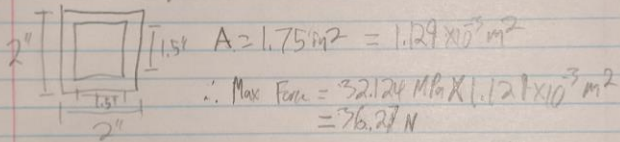 2"
1.5"
A = 1.75 in² = 1.129 x10⁻³ m²
1.5"
2"
∴ Max Force = 32.124 MPa X 1.129 x10⁻³ m²
= 36.27 N